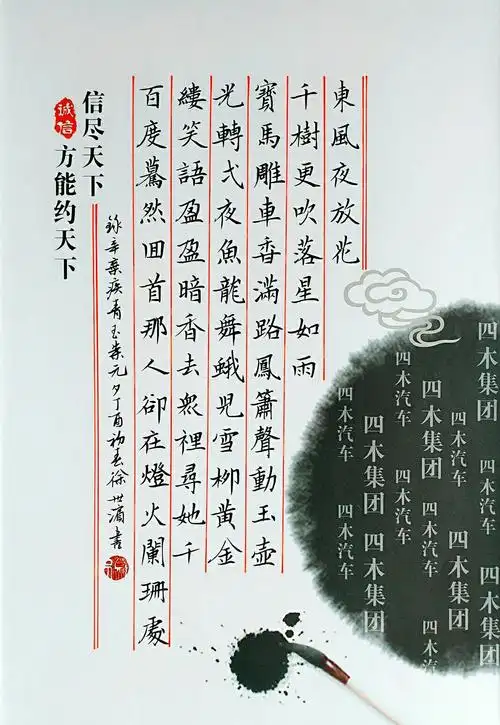 東風夜放花
千樹更吹落星如雨
寶馬雕車香滿路鳳簫聲動玉壺
光轉弌夜魚龍舞蛾児雪柳黄金
縷笑語盈盈暗香去衆裡尋她千
百度驀然回首那人卻在燈火闌珊處
錄辛棄疾青玉案元夕丁酉初春徐世濱書
信尽天下
诚信
方能约天下
四木集团
四木汽车
四木集团
四木汽车
四木集团
四木集团
四木汽车
四木汽车
四木汽车
四木汽车
四木汽车
四木集团
四木集团
四木汽车
四木汽车